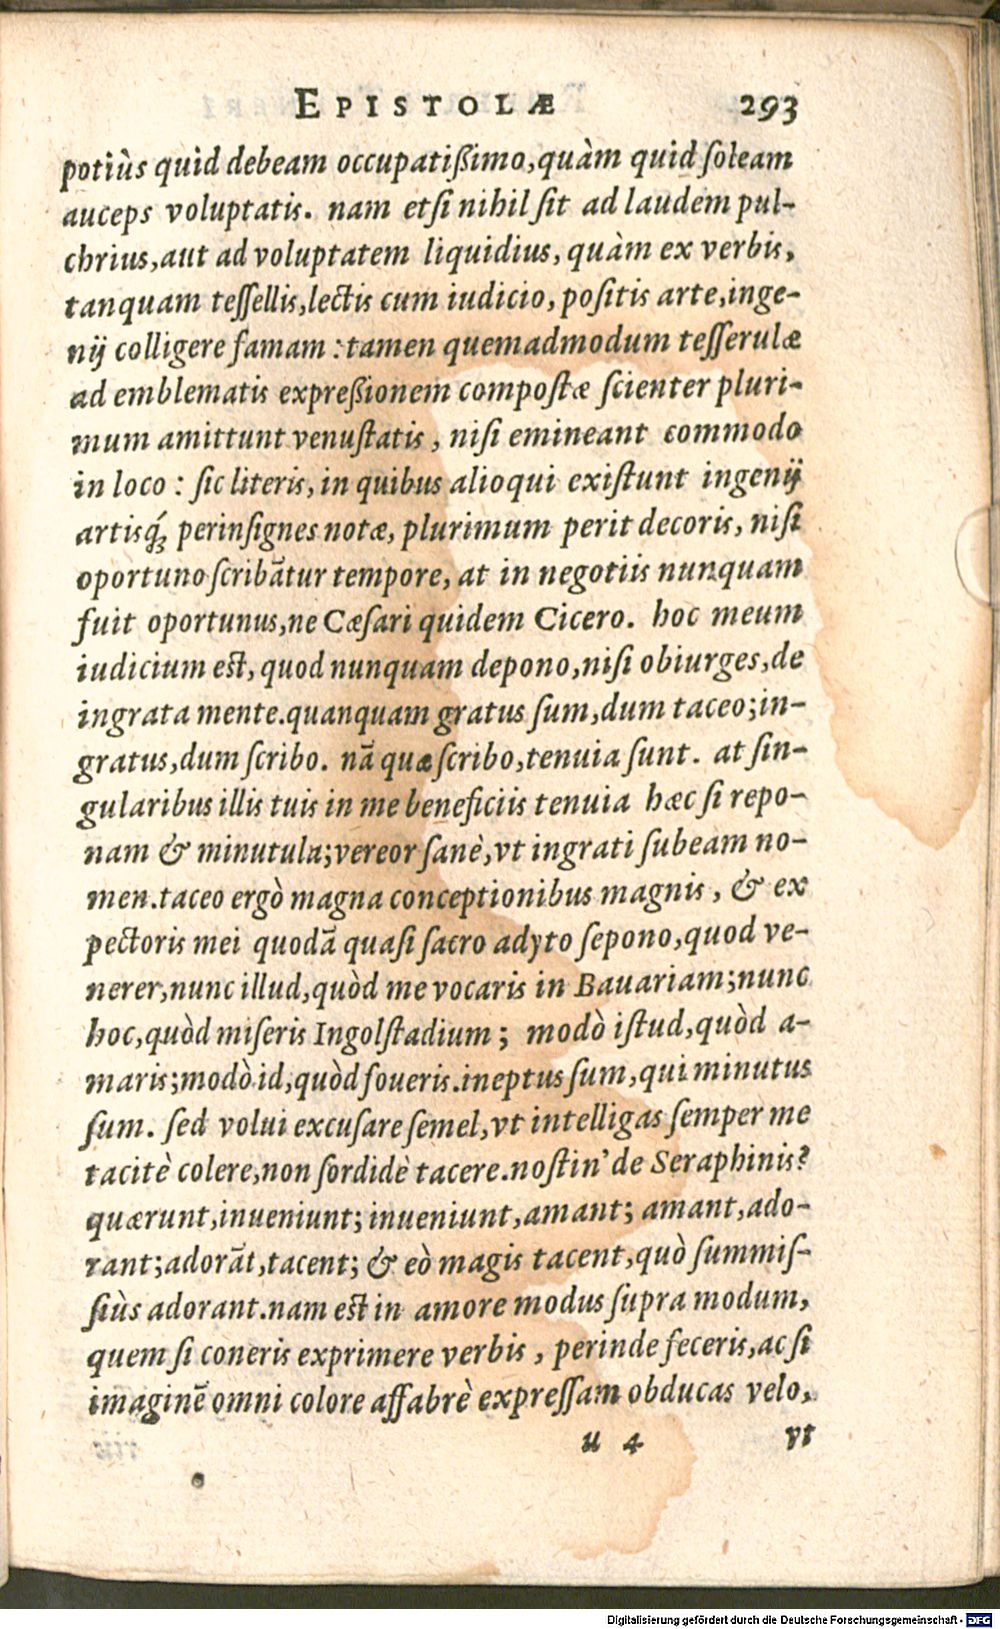 EPISTOLÆ 293
potiùs quid debeam occupatißimo, quàm quid ſoleam
auceps voluptatis. nam etſi nihil ſit ad laudem pul-
chrius, aut ad voluptatem liquidius, quàm ex verbis,
tanquam teſſellis, lectis cum iudicio, poſitis arte, inge-
nij colligere famam : tamen quemadmodum teſſerulæ
ad emblematis expreßionem compoſtæ ſcienter pluri-
mum amittunt venuſtatis, niſi emineant commodo
in loco : ſic literis, in quibus alioqui exiſtunt ingenij
artisq́; perinſignes notæ, plurimum perit decoris, niſi
oportuno ſcribãtur tempore, at in negotiis nunquam
fuit oportunus, ne Cæſari quidem Cicero. hoc meum
iudicium eſt, quod nunquam depono, niſi obiurges, de
ingrata mente. quanquam gratus ſum, dum taceo; in-
gratus, dum ſcribo. nã quæ ſcribo, tenuia ſunt. at ſin-
gularibus illis tuis in me beneficiis tenuia hæc ſi repo-
nam & minutula; vereor ſanè, vt ingrati ſubeam no-
men. taceo ergò magna conceptionibus magnis, & ex
pectoris mei quodã quaſi ſacro adyto ſepono, quod ve-
nerer, nunc illud, quòd me vocaris in Bauariam; nunc
hoc, quòd miſeris Ingolſtadium; modò iſtud, quòd a-
maris; modò id, quòd foueris. ineptus ſum, qui minutus
ſum. ſed volui excuſare ſemel, vt intelligas ſemper me
tacitè colere, non ſordidè tacere. noſtin' de Seraphinis?
quærunt, inueniunt; inueniunt, amant; amant, ado-
rant; adorãt, tacent; & eò magis tacent, quò ſummiſ-
ſiùs adorant. nam eſt in amore modus ſupra modum,
quem ſi coneris exprimere verbis, perinde feceris, ac ſi
imaginẽ omni colore affabrè expreſſam obducas velo,
u 4 vt
Digitalisierung gefördert durch die Deutsche Forschungsgemeinschaft - DFG